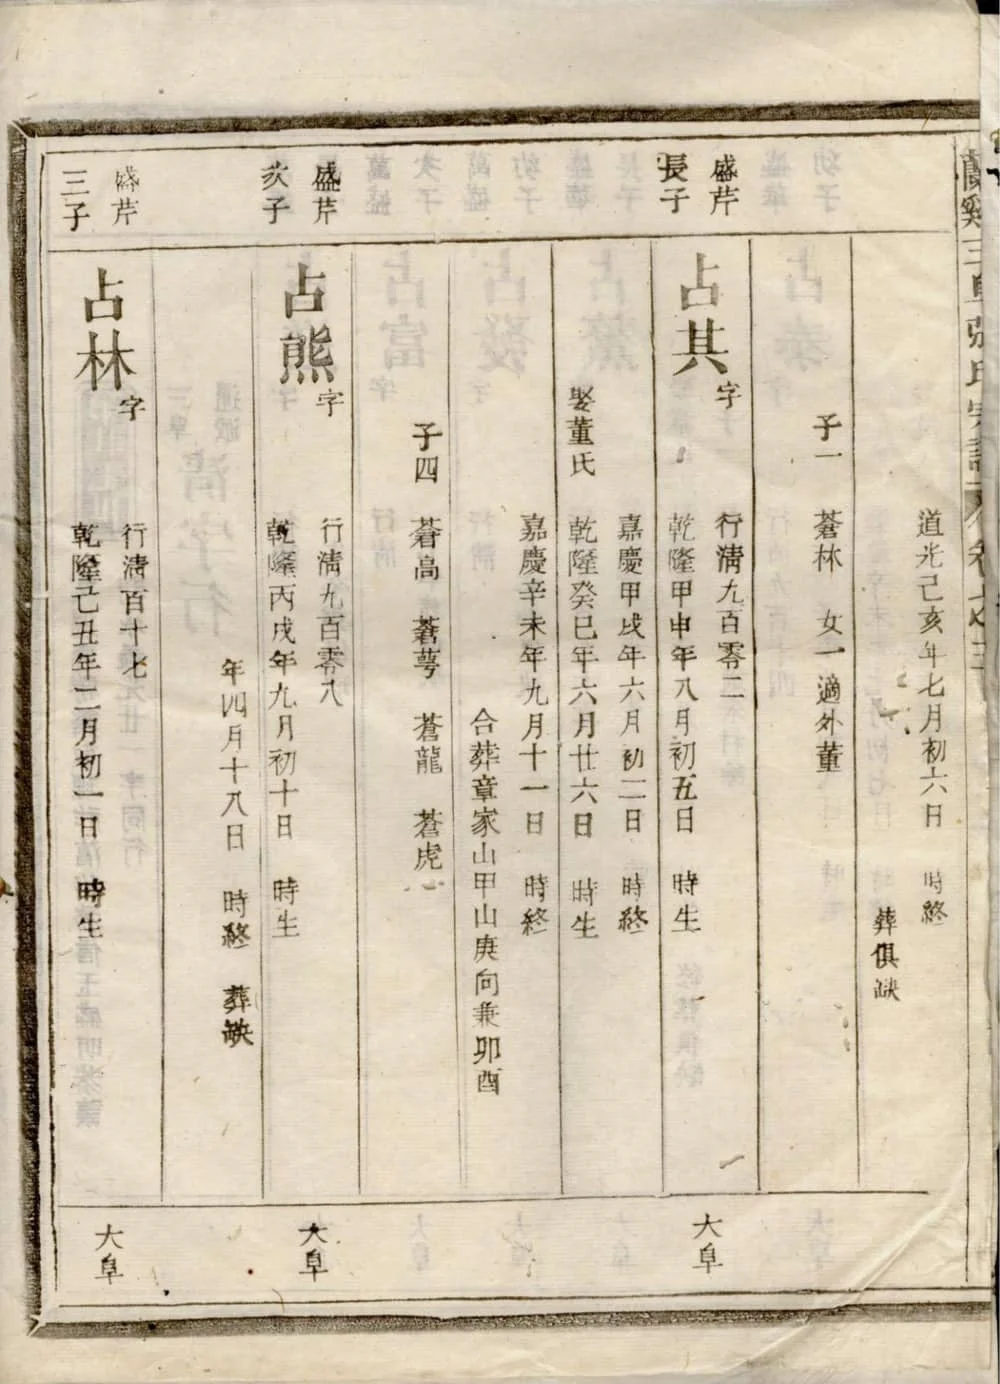 蘭谿三阜張氏宗譜
道光己亥年七月初六日 時終
葬俱缺
子一 蒼林 女一適外董
盛芹
長子
占其字
行清九百零二
乾隆甲申年八月初五日 時生
嘉慶甲戌年六月初二日 時終
娶董氏 乾隆癸巳年六月廿六日 時生
嘉慶辛未年九月十一日 時終
合葬章家山甲山庚向兼卯酉
子四 蒼高 蒼萼 蒼龍 蒼虎
大阜
盛芹
次子
占熊字
行清九百零八
乾隆丙戌年九月初十日 時生
年四月十八日 時終 葬缺
大阜
盛芹
三子
占林字
行清百十七
乾隆己丑年二月初一日 時生
大阜